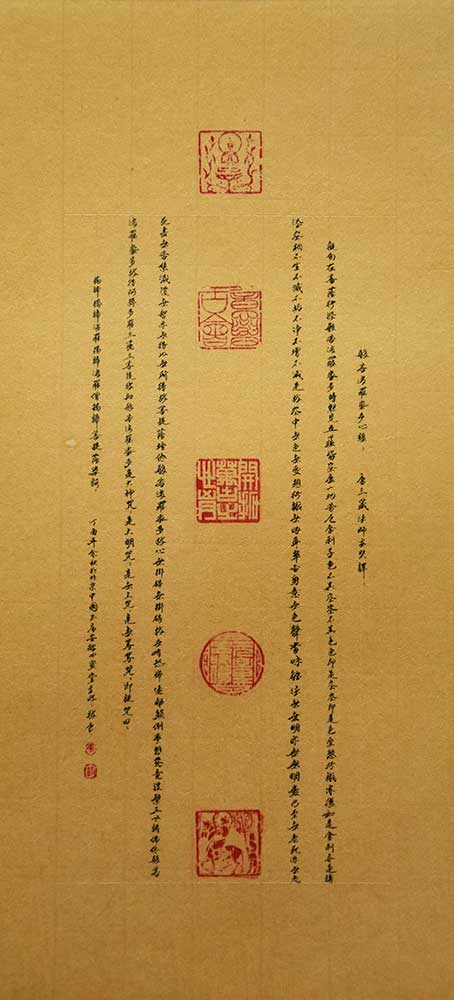 般若波羅蜜多心經 唐三藏法師玄奘譯
觀自在菩薩行深般若波羅蜜多時照見五蘊皆空度一切苦厄舍利子色不異空空不異色色即是空空即是色受想行識亦復如是舍利子是諸
法空相不生不滅不垢不淨不增不減是故空中無色無受想行識無眼耳鼻舌身意無色聲香味觸法無無明亦無無明盡乃至無老死亦無老
死盡無苦集滅道無智亦無得以無所得故菩提薩埵依般若波羅蜜多故心無掛礙無掛礙故無有恐怖遠離顛倒夢想究竟涅槃三世諸佛依般若
波羅蜜多故得阿耨多羅三藐三菩提故知般若波羅蜜多是大神咒是大明咒是無上咒是無等等咒即說咒曰
揭諦揭諦波羅揭諦波羅僧揭諦菩提薩婆訶
丁酉年金秋於北京中國
開拓萬世之胸